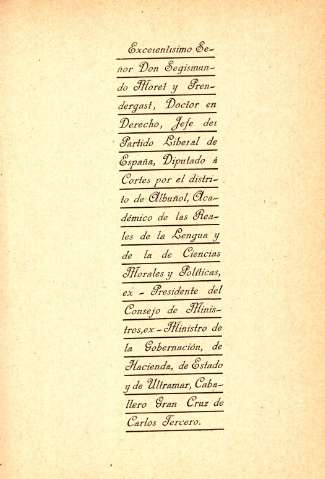 Excelentísimo Se-
ñor Don Segismun-
do Moret y Pren-
dergast, Doctor en
Derecho, Jefe del
Partido Liberal de
España, Diputado á
Cortes por el distri-
to de Albuñol, Aca-
démico de las Rea-
les de la Lengua y
de la de Ciencias
Morales y Políticas,
ex - Presidente del
Consejo de Minis-
tros, ex - Ministro de
la Gobernación, de
Hacienda, de Estado
y de Ultramar, Caba-
llero Gran Cruz de
Carlos Tercero.